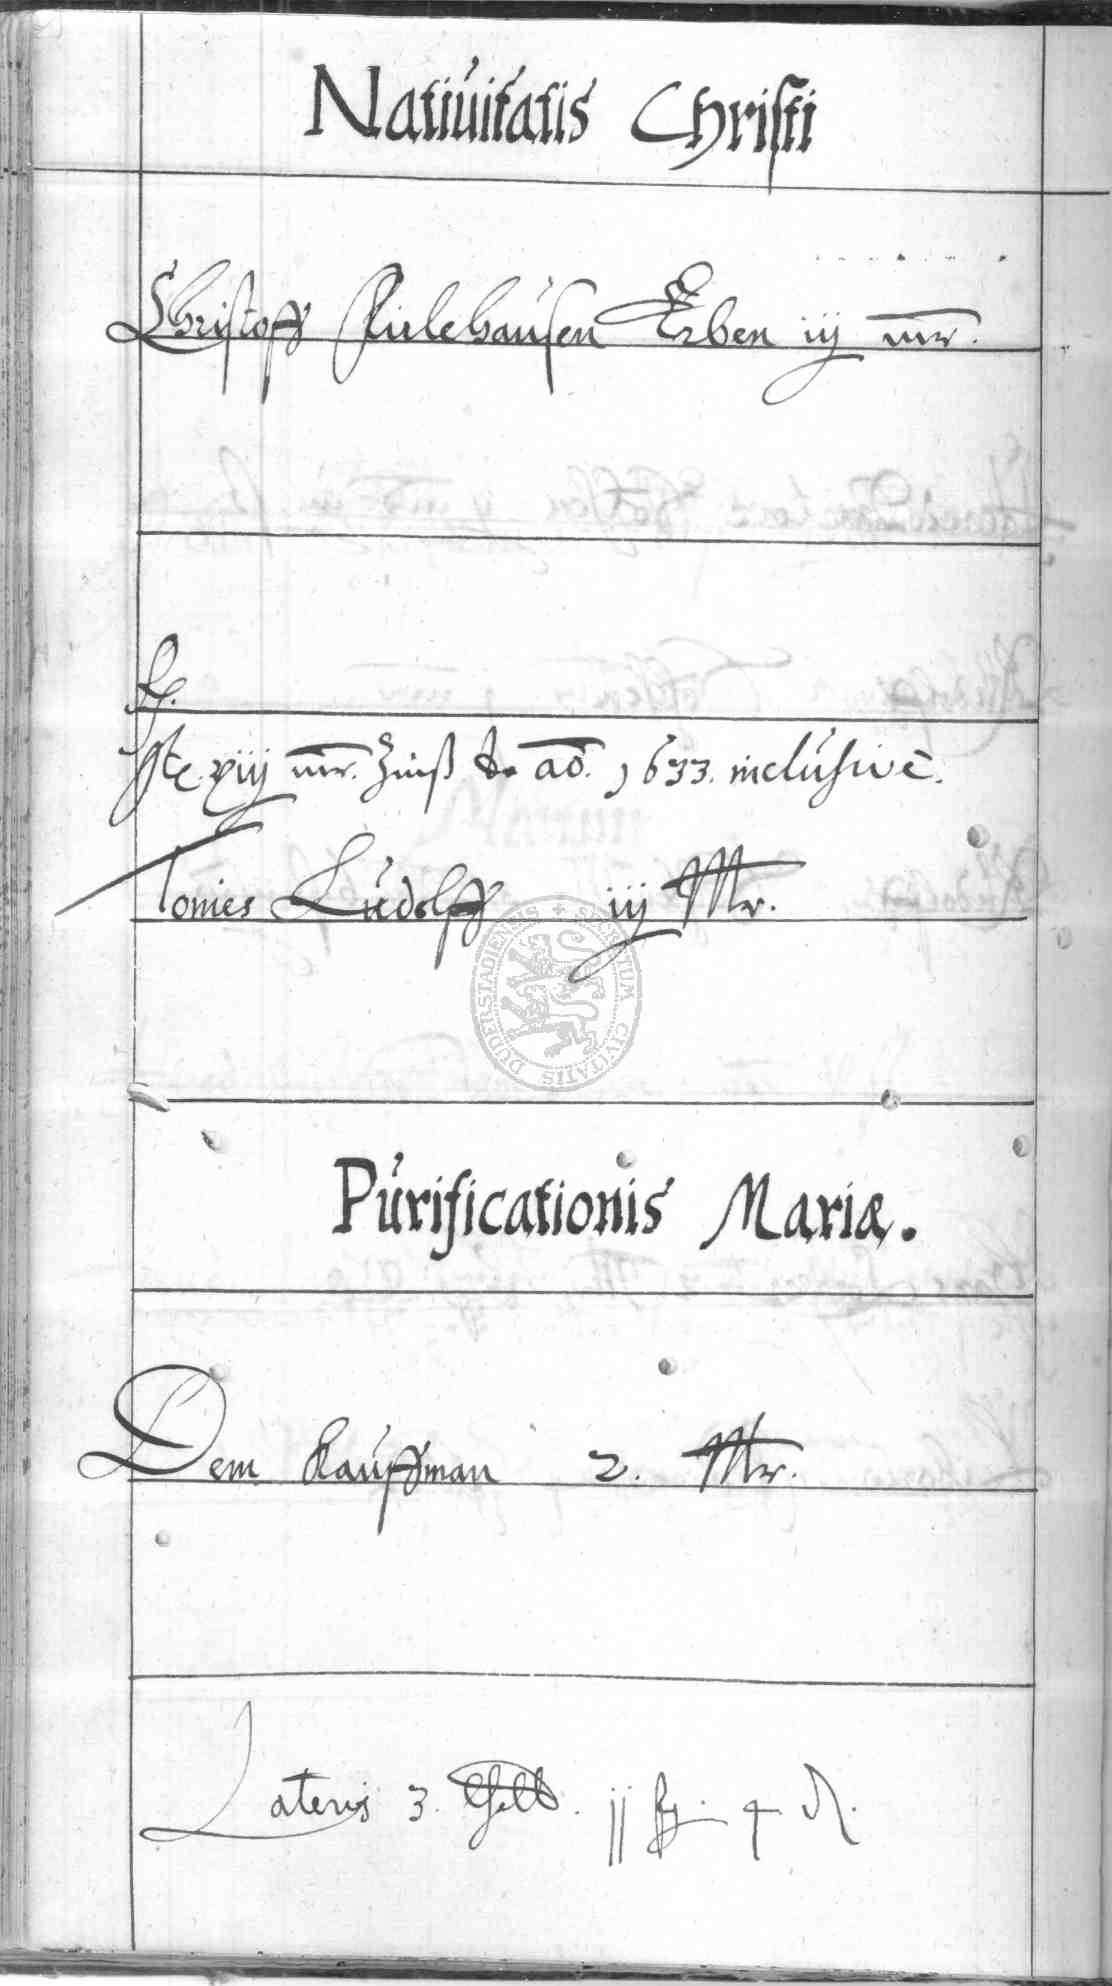 Nativitatis Christi
Christoff Rirlehausen Erben iij mr.
Ite. xiij mr. Zinß de ao. 1633. inclusive.
Tonies Ludolff iij Mr.
SECRETUM CIVITATIS DUDERSTADIENSIS
Purificationis Mariæ.
Dem Kauffman 2. Mr.
Lateris 3. 11 4